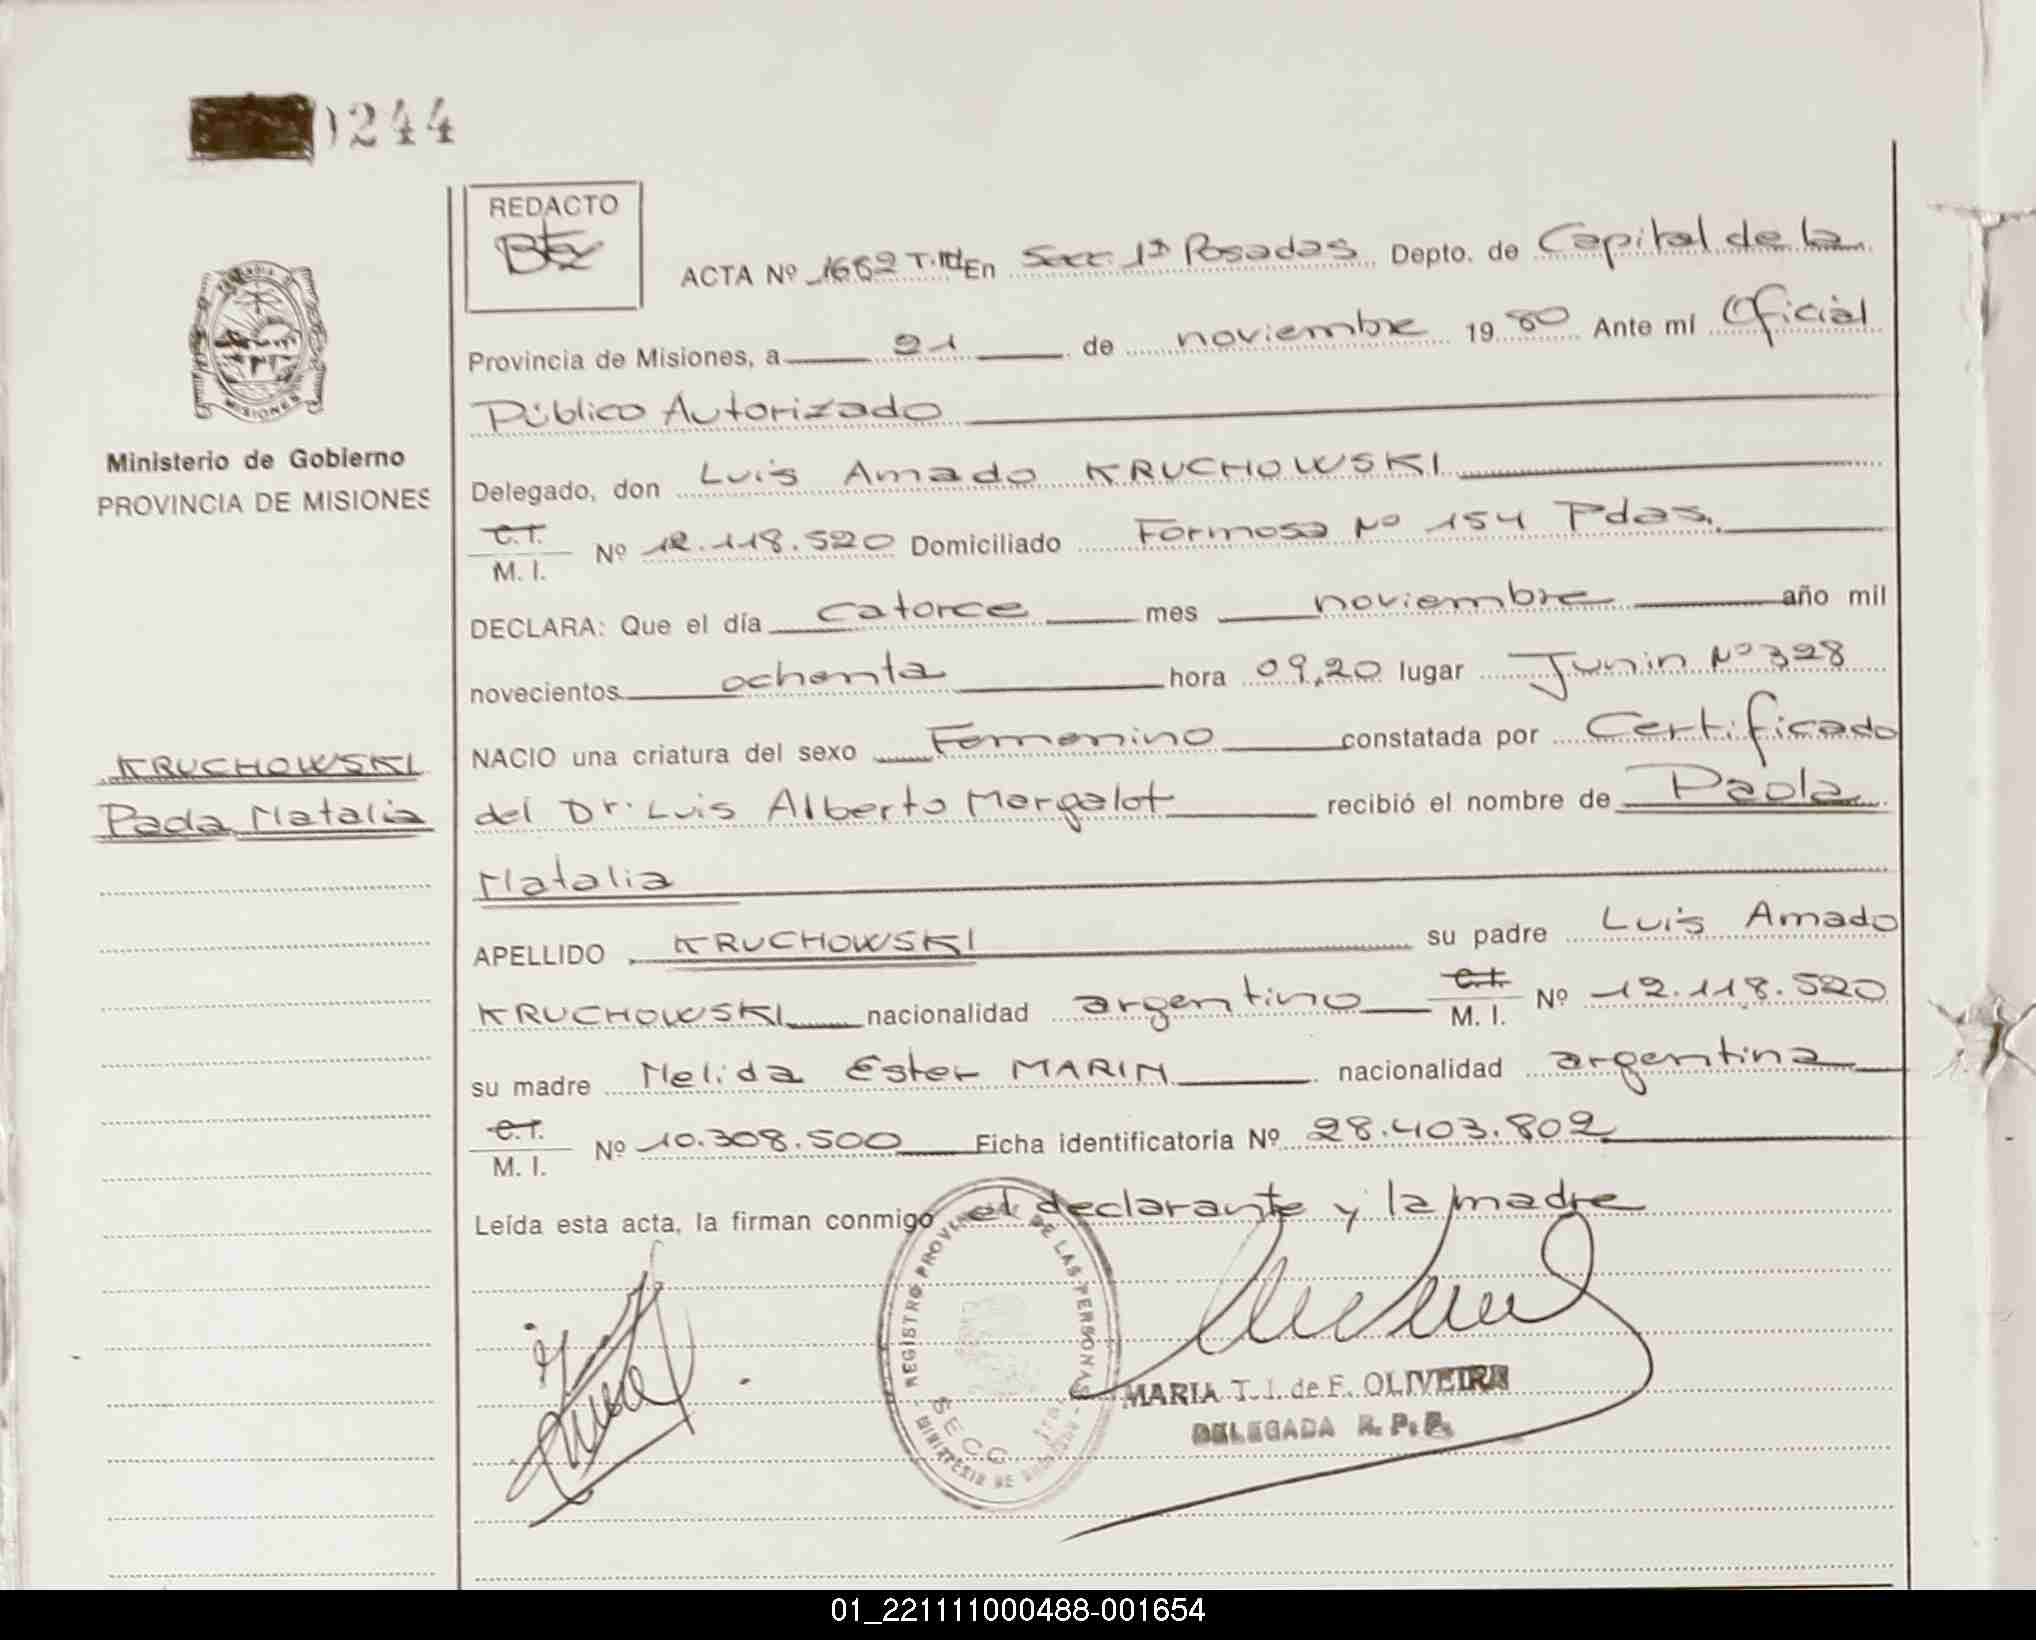 0244
REDACTO
ACTA Nº 1662 T.III En Secc. 1ª Posadas Depto. de Capital de la
Provincia de Misiones, a 21 de noviembre 1980 Ante mí Oficial
Público Autorizado
MISIONES
Ministerio de Gobierno
PROVINCIA DE MISIONES
Delegado, don Luis Amado KRUCHOWSKI
C.I. M. I. Nº 12.118.520 Domiciliado Formosa Nº 154 Pdas.
DECLARA: Que el día catorce mes noviembre año mil
novecientos ochenta hora 09,20 lugar Junin Nº 328
NACIO una criatura del sexo Femenino constatada por Certificado
KRUCHOWSKI
Paola Natalia
del Dr. Luis Alberto Morgalot recibió el nombre de Paola
Natalia
APELLIDO KRUCHOWSKI su padre Luis Amado
KRUCHOWSKI nacionalidad argentino C.I. M. I. Nº 12.118.520
su madre Nelida Ester MARIN nacionalidad argentina
C.I. M. I. Nº 10.308.500 Ficha identificatoria Nº 28.403.802
Leída esta acta, la firman conmigo el declarante y la madre
REGISTRO PROVINCIAL DE LAS PERSONAS
SECC.
MARIA T. I. de F. OLIVEIRA
DELEGADA R. P. P.
01_221111000488-001654